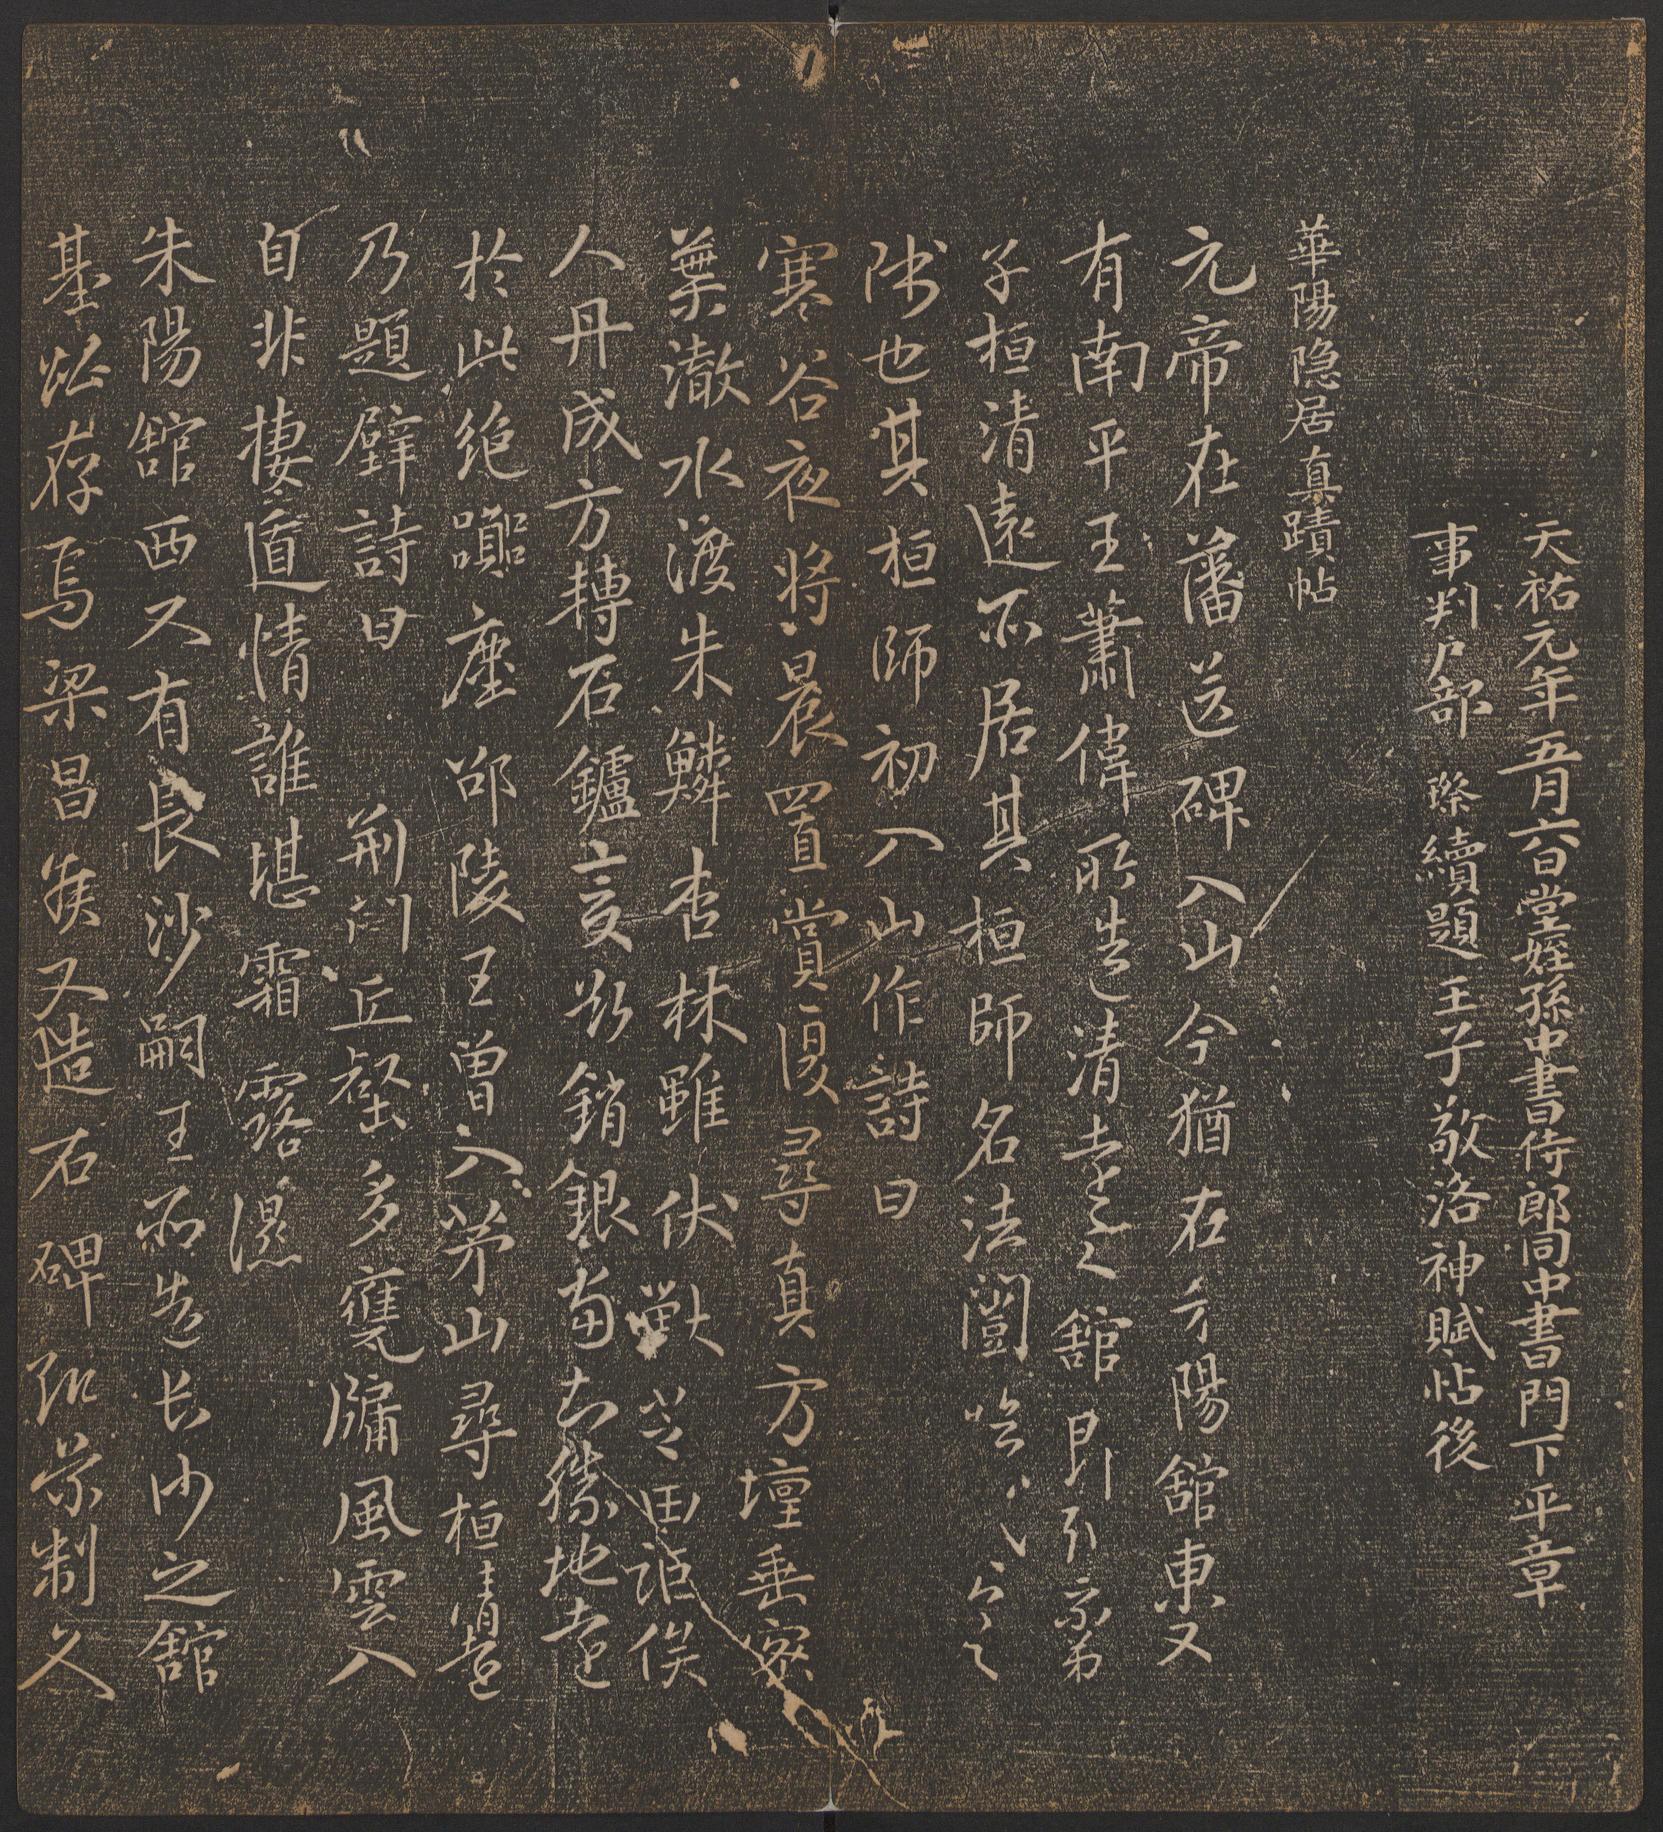 天祐元年五月六日堂姪孫中書侍郎同中書門下平章
事判户部璨續題王子敬洛神賦帖後
華陽隐居真蹟帖
元帝在藩送碑入山今猶在方陽舘東又
有南平王蕭偉所造清遠之舘即引弟
子桓清遠所居其桓師名法闓
也其桓師初入山作詩曰
寒谷夜將晨置賞復尋真方壇垂密
葉澈水渡朱鱗杏林雖伏獸芝田詎俟
人丹成方轉石鑪變欲銷銀當知勝地遠
於此絶囂塵邵陵王曽入茅山尋桓清遠
乃題壁詩曰荆門丘壑多甕牖風雲入
自非棲遁情誰堪霜露濕
朱陽舘西又有長沙嗣王所造长沙之舘
基始存焉梁昌矦又造石碑制文